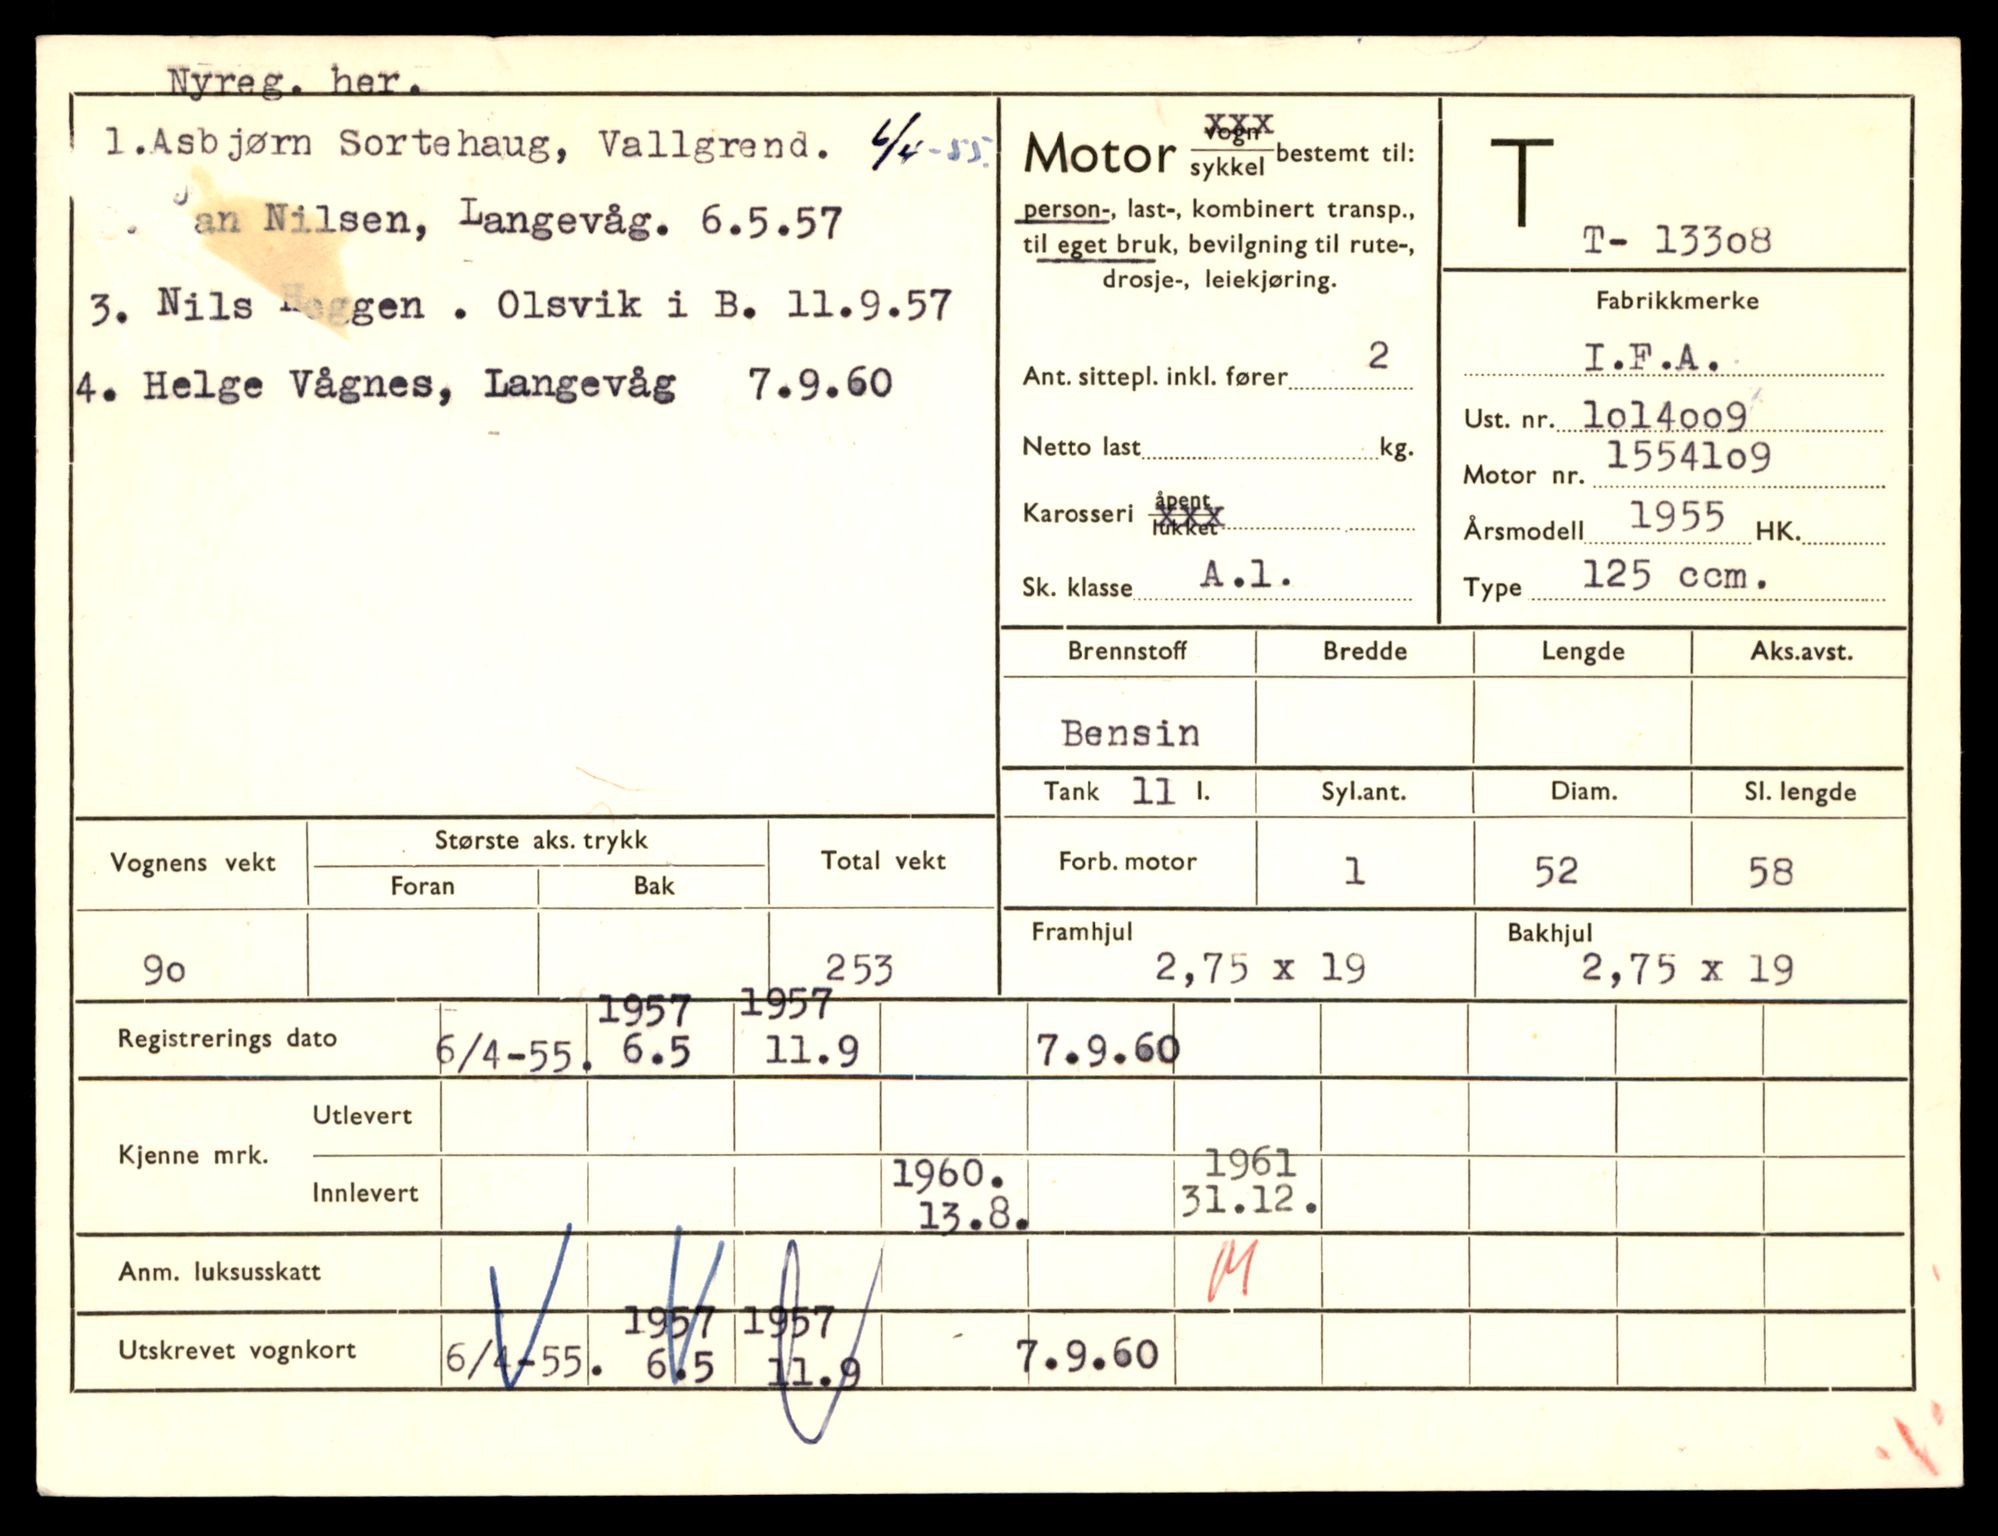 Nyreg. her.
1.Asbjørn Sortehaug, Vallgrend. 6/4-55.
an Nilsen, Langevåg. 6.5.57
3. Nils Heggen . Olsvik i B. 11.9.57
4. Helge Vågnes, Langevåg 7.9.60
Motor vogn/sykkel bestemt til:
xxx
person-, last-, kombinert transp.,
til eget bruk, bevilgning til rute-,
drosje-, leiekjøring.
Ant. sittepl. inkl. fører 2
Netto last kg.
Karosseri åpent/lukket
xxx
Sk. klasse A.l.
T
T- 133o8
Fabrikkmerke
I.F.A.
Ust. nr. lol4oo9
Motor nr. 1554lo9
Årsmodell 1955 HK.
Type 125 ccm.
Brennstoff Bredde Lengde Aks.avst.
Bensin
Tank 11 l. Syl.ant. Diam. Sl. lengde
Forb. motor 1 52 58
Framhjul Bakhjul
2,75 x 19 2,75 x 19
Vognens vekt Største aks. trykk Total vekt
Foran Bak
9o 253
1957 1957
Registrerings dato 6/4-55. 6.5 11.9 7.9.60
Kjenne mrk. Utlevert
Innlevert 1960. 1961
13.8. 31.12.
Anm. luksusskatt
1957 1957
Utskrevet vognkort 6/4-55. 6.5 11.9 7.9.60